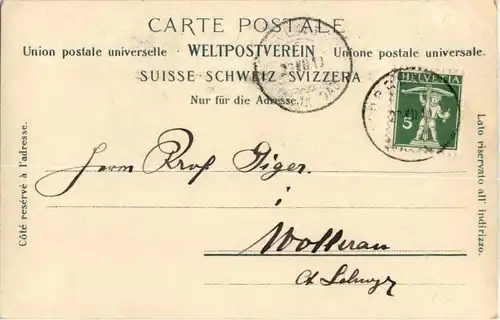 CARTE POSTALE
Union postale universelle · WELTPOSTVEREIN · Unione postale universale.
SUISSE · SCHWEIZ · SVIZZERA
Nur für die Adresse.
HELVETIA
5
Côté reservé à l'adresse.
Lato riservato all' indirizzo.
Herrn Prof. Giger.
i
Wollerau
Ct Schwyz